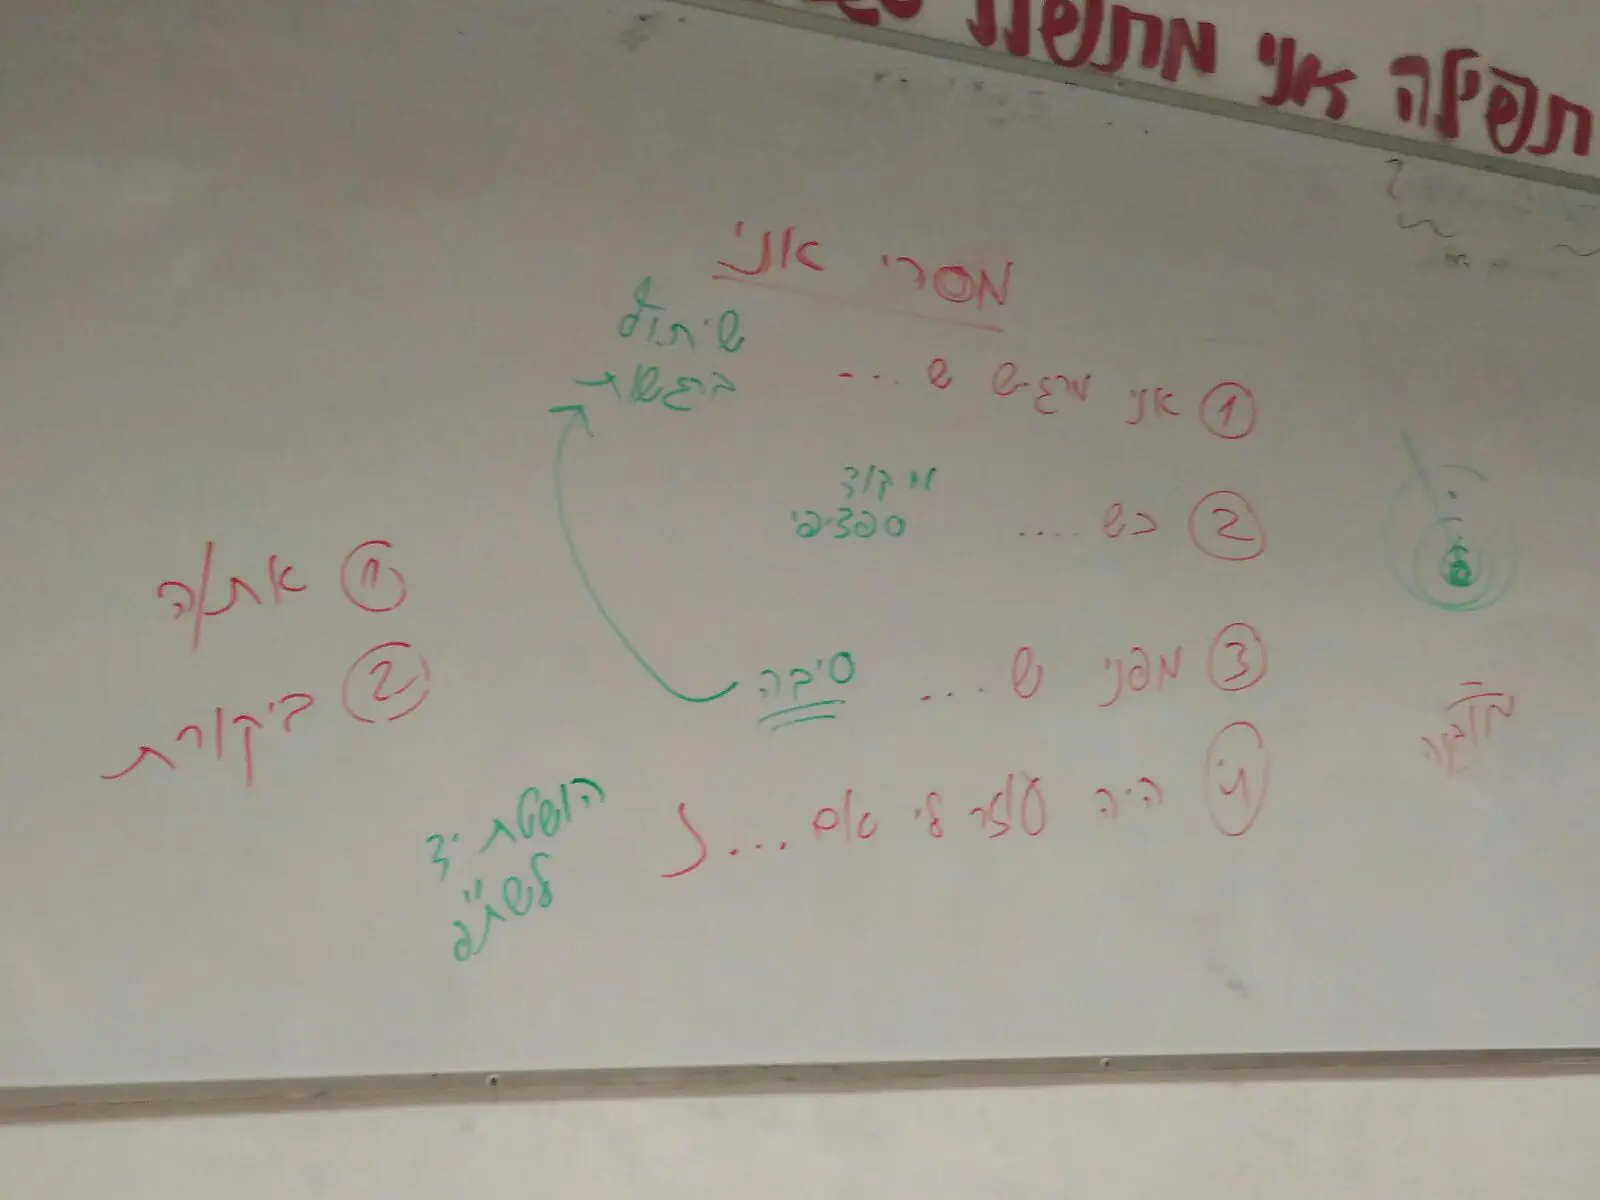 תפילה אני מתפלל
מסרי אני
① אני מרגיש ש...
שיתוף
ברגשות
② כש....
מיקוד
ספציפי
③ מפני ש...
סיבה
④ היה עוזר לי אם...
הושטת יד
לשת"פ
① את/ה
② ביקורת